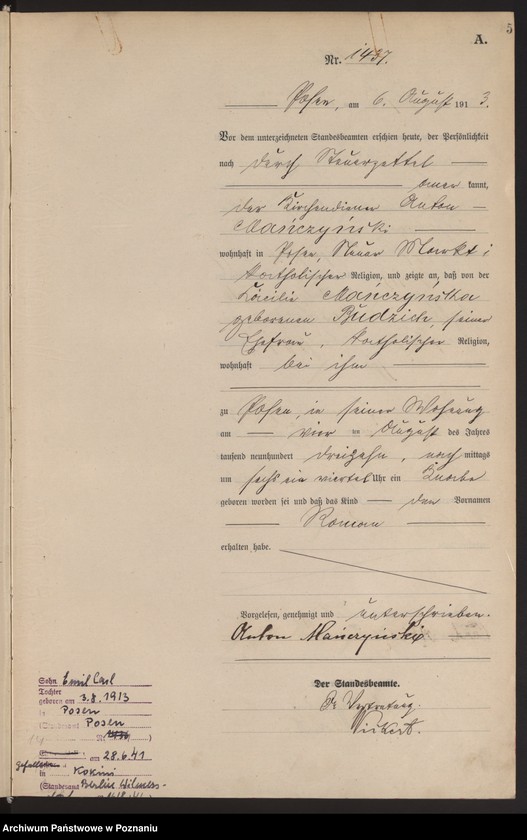 5
A.
Nr. 1437.
Posen, am 6. August 1913.
Vor dem unterzeichneten Standesbeamten erschien heute, der Persönlichkeit
nach durch Steuerzettel
kannt,
der Kirchendiener Anton
Mańczyński
wohnhaft in Posen, Neuer Markt
katholischer Religion, und zeigte an, daß von der
Cäcilie Mańczyńska
geborenen Budzich, seiner
Ehefrau, katholischer Religion,
wohnhaft bei ihm
zu Posen, in seiner Wohnung
am vier ten August des Jahres
tausend neunhundert dreizehn, nach mittags
um sechs ein viertel Uhr ein Knabe
geboren worden sei und daß das Kind den Vornamen
Roman
erhalten habe.
Vorgelesen, genehmigt und unterschrieben.
Anton Mańczyński
Der Standesbeamte.
In Vertretung.
Sohn Emil Carl
Tochter
geboren am 3.8.1913
in Posen
Posen
am 28.6.41
in
(Standesamt Berlin
Archiwum Państwowe w Poznaniu